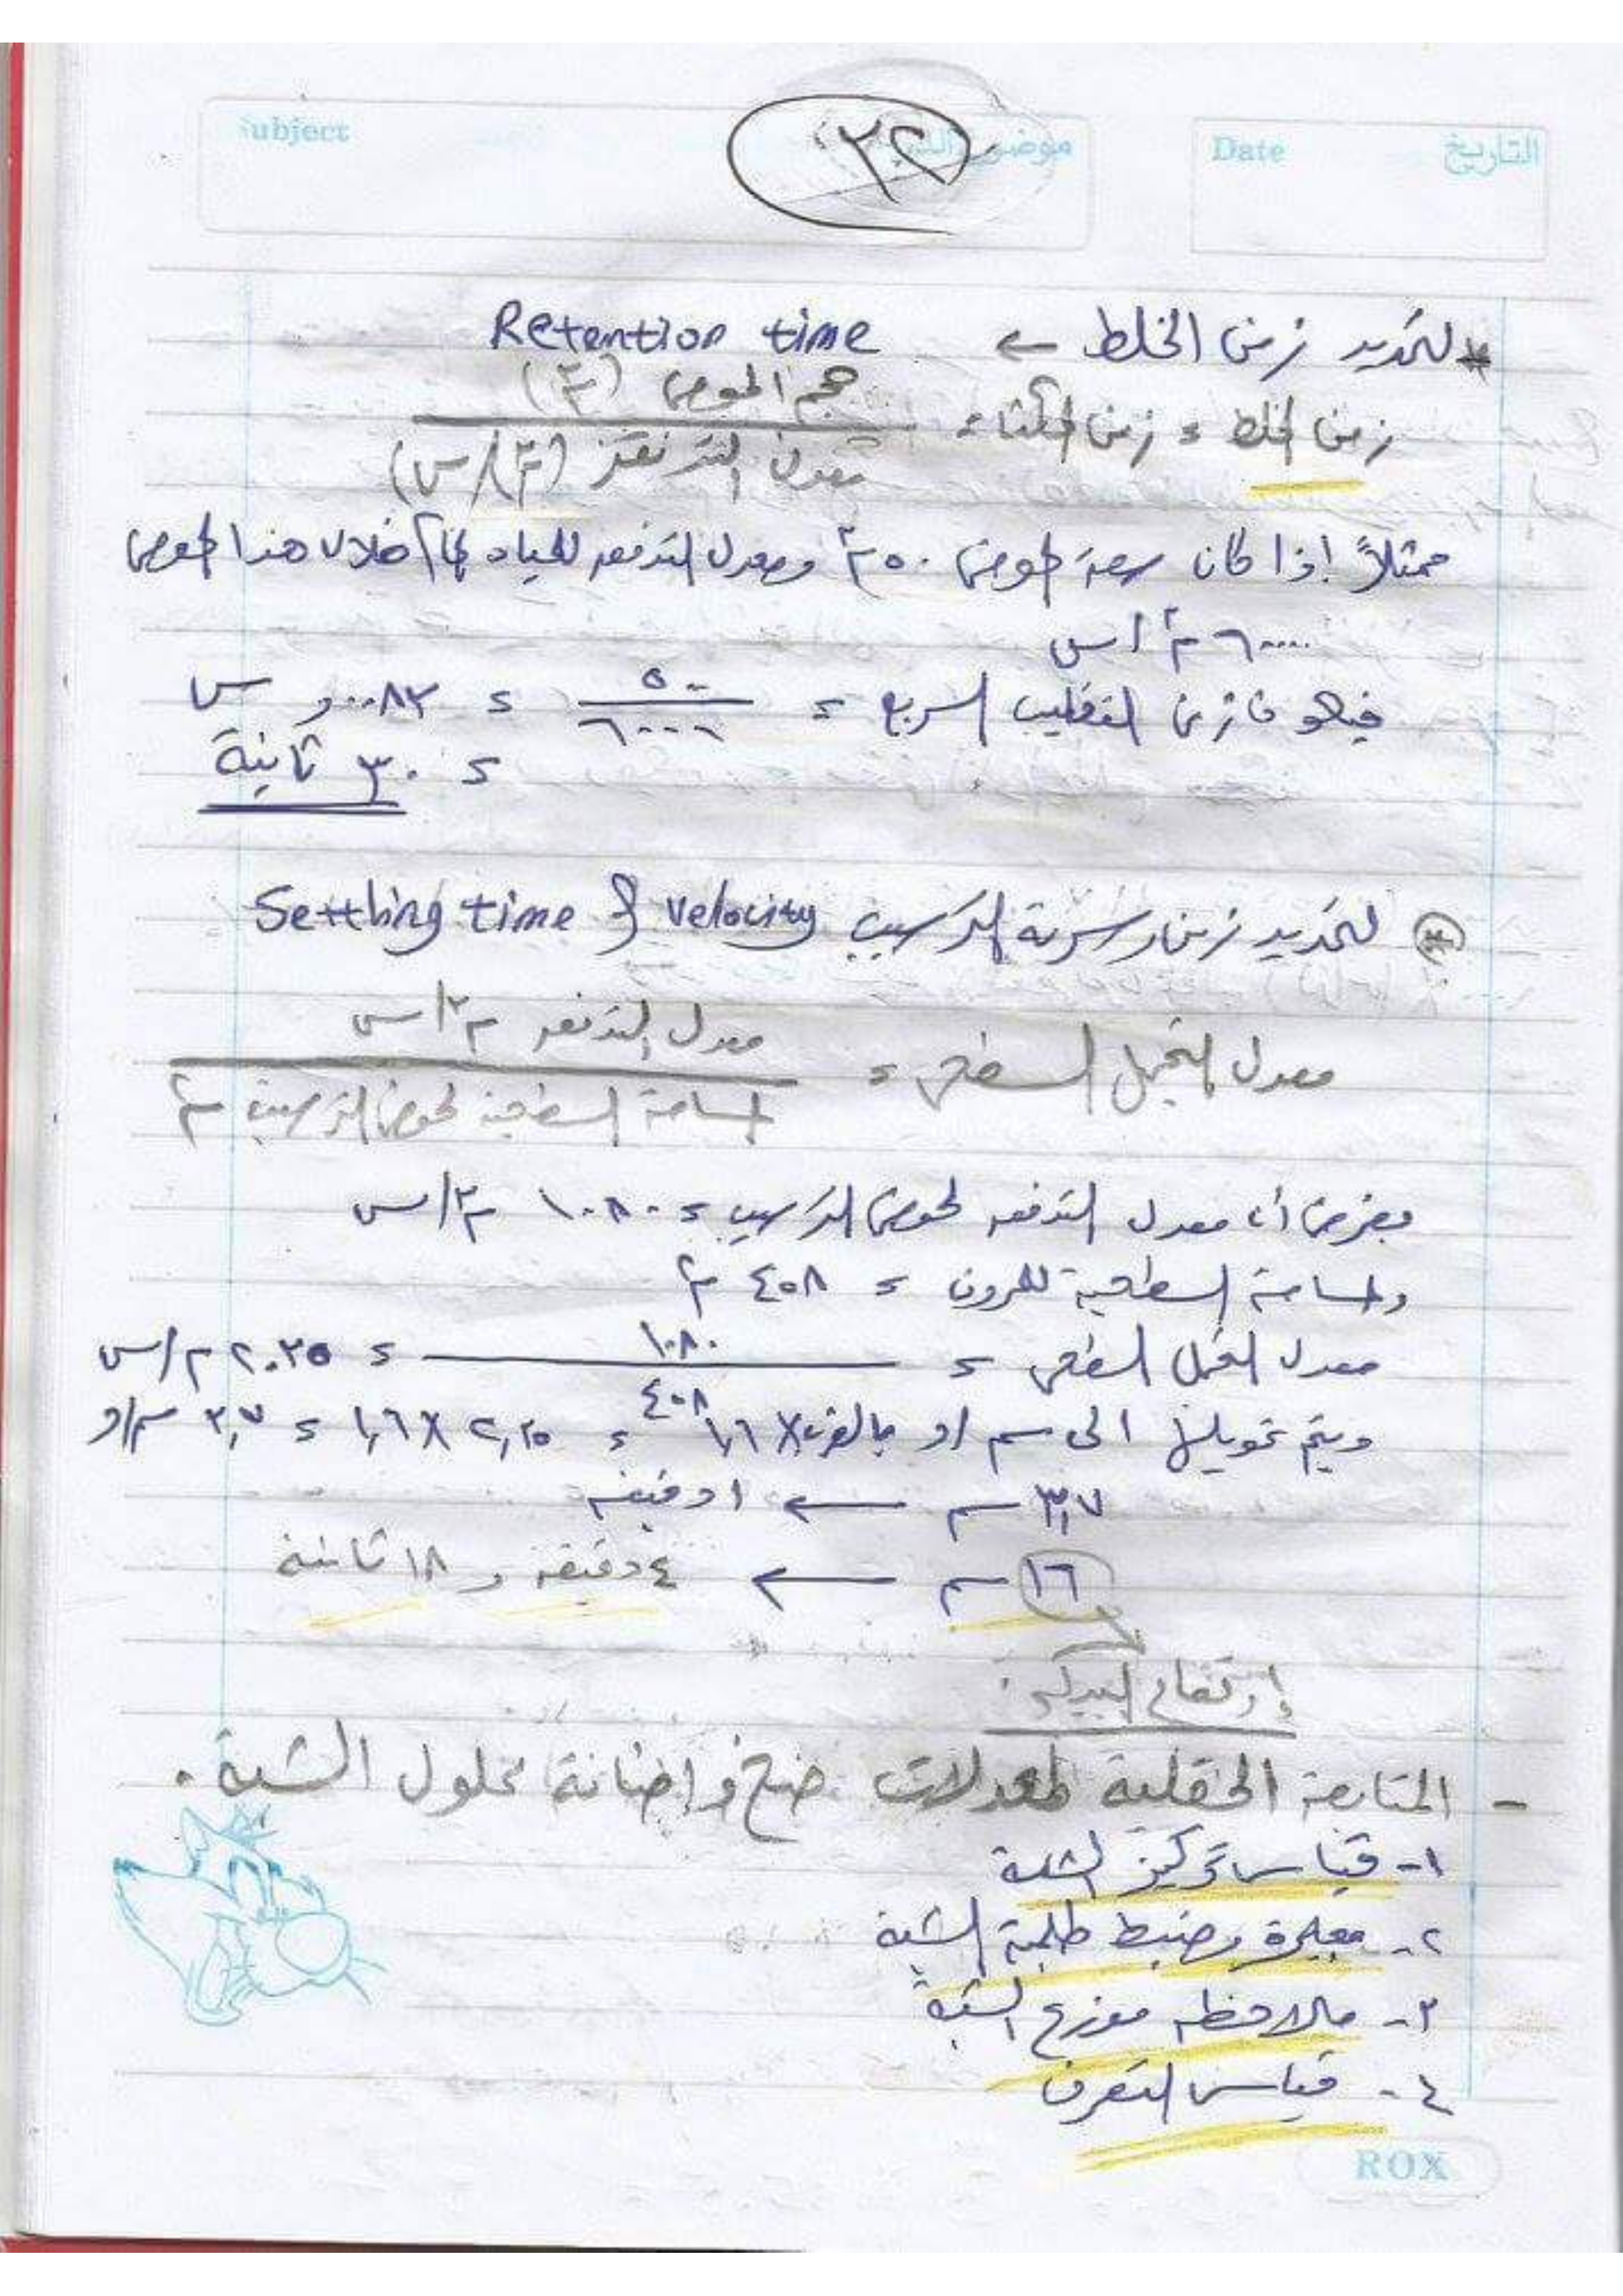 Subject موضوع الدرس Date التاريخ
٣٢
* لتحديد زمن الخلط ← Retention time
زمن الخلط = زمن المكث = حجم الحوض (م٣)
معدل التدفق (م٣/س)
فمثلاً إذا كان سعة الحوض ٥٠ م٣ ومعدل التدفق للمياه خلال هذا الحوض
٦٠٠٠ م٣/س
زمن التقليب السريع = ٥٠ = ٠٠٨٣و س
٦٠٠٠
= ٣٠ ثانية
* لتحديد زمن وسرعة الترسيب Settling time & velocity
معدل التحميل السطحي = معدل التدفق م٣/س
المساحة السطحية لحوض الترسيب م٢
بفرض أن معدل التدفق لحوض الترسيب = ١٠٨٠ م٣/س
والمساحة السطحية للمروق = ٤٥٨ م٢
معدل التحميل السطحي = ١٠٨٠ = ٢.٣٥ م/س
٤٥٨
ويتم تحويلها الى سم/د بالضرب X ١,٦ = ٢,٣٥ X ١,٦ = ٣,٧ سم/د
٣,٧ سم ← ١ دقيقه
١٦ سم ← ٤ دقيقه و ١٨ ثانية
إرتفاع البيكر
- المتابعة الحقلية لمعدلات ضخ وإضافة محلول الشبة .
١- قياس تركيز الشبة
٢- معايرة وضبط طلمبة الشبة
٣- ملاحظه موزع الشبة
٤- قياس التصرف
ROX